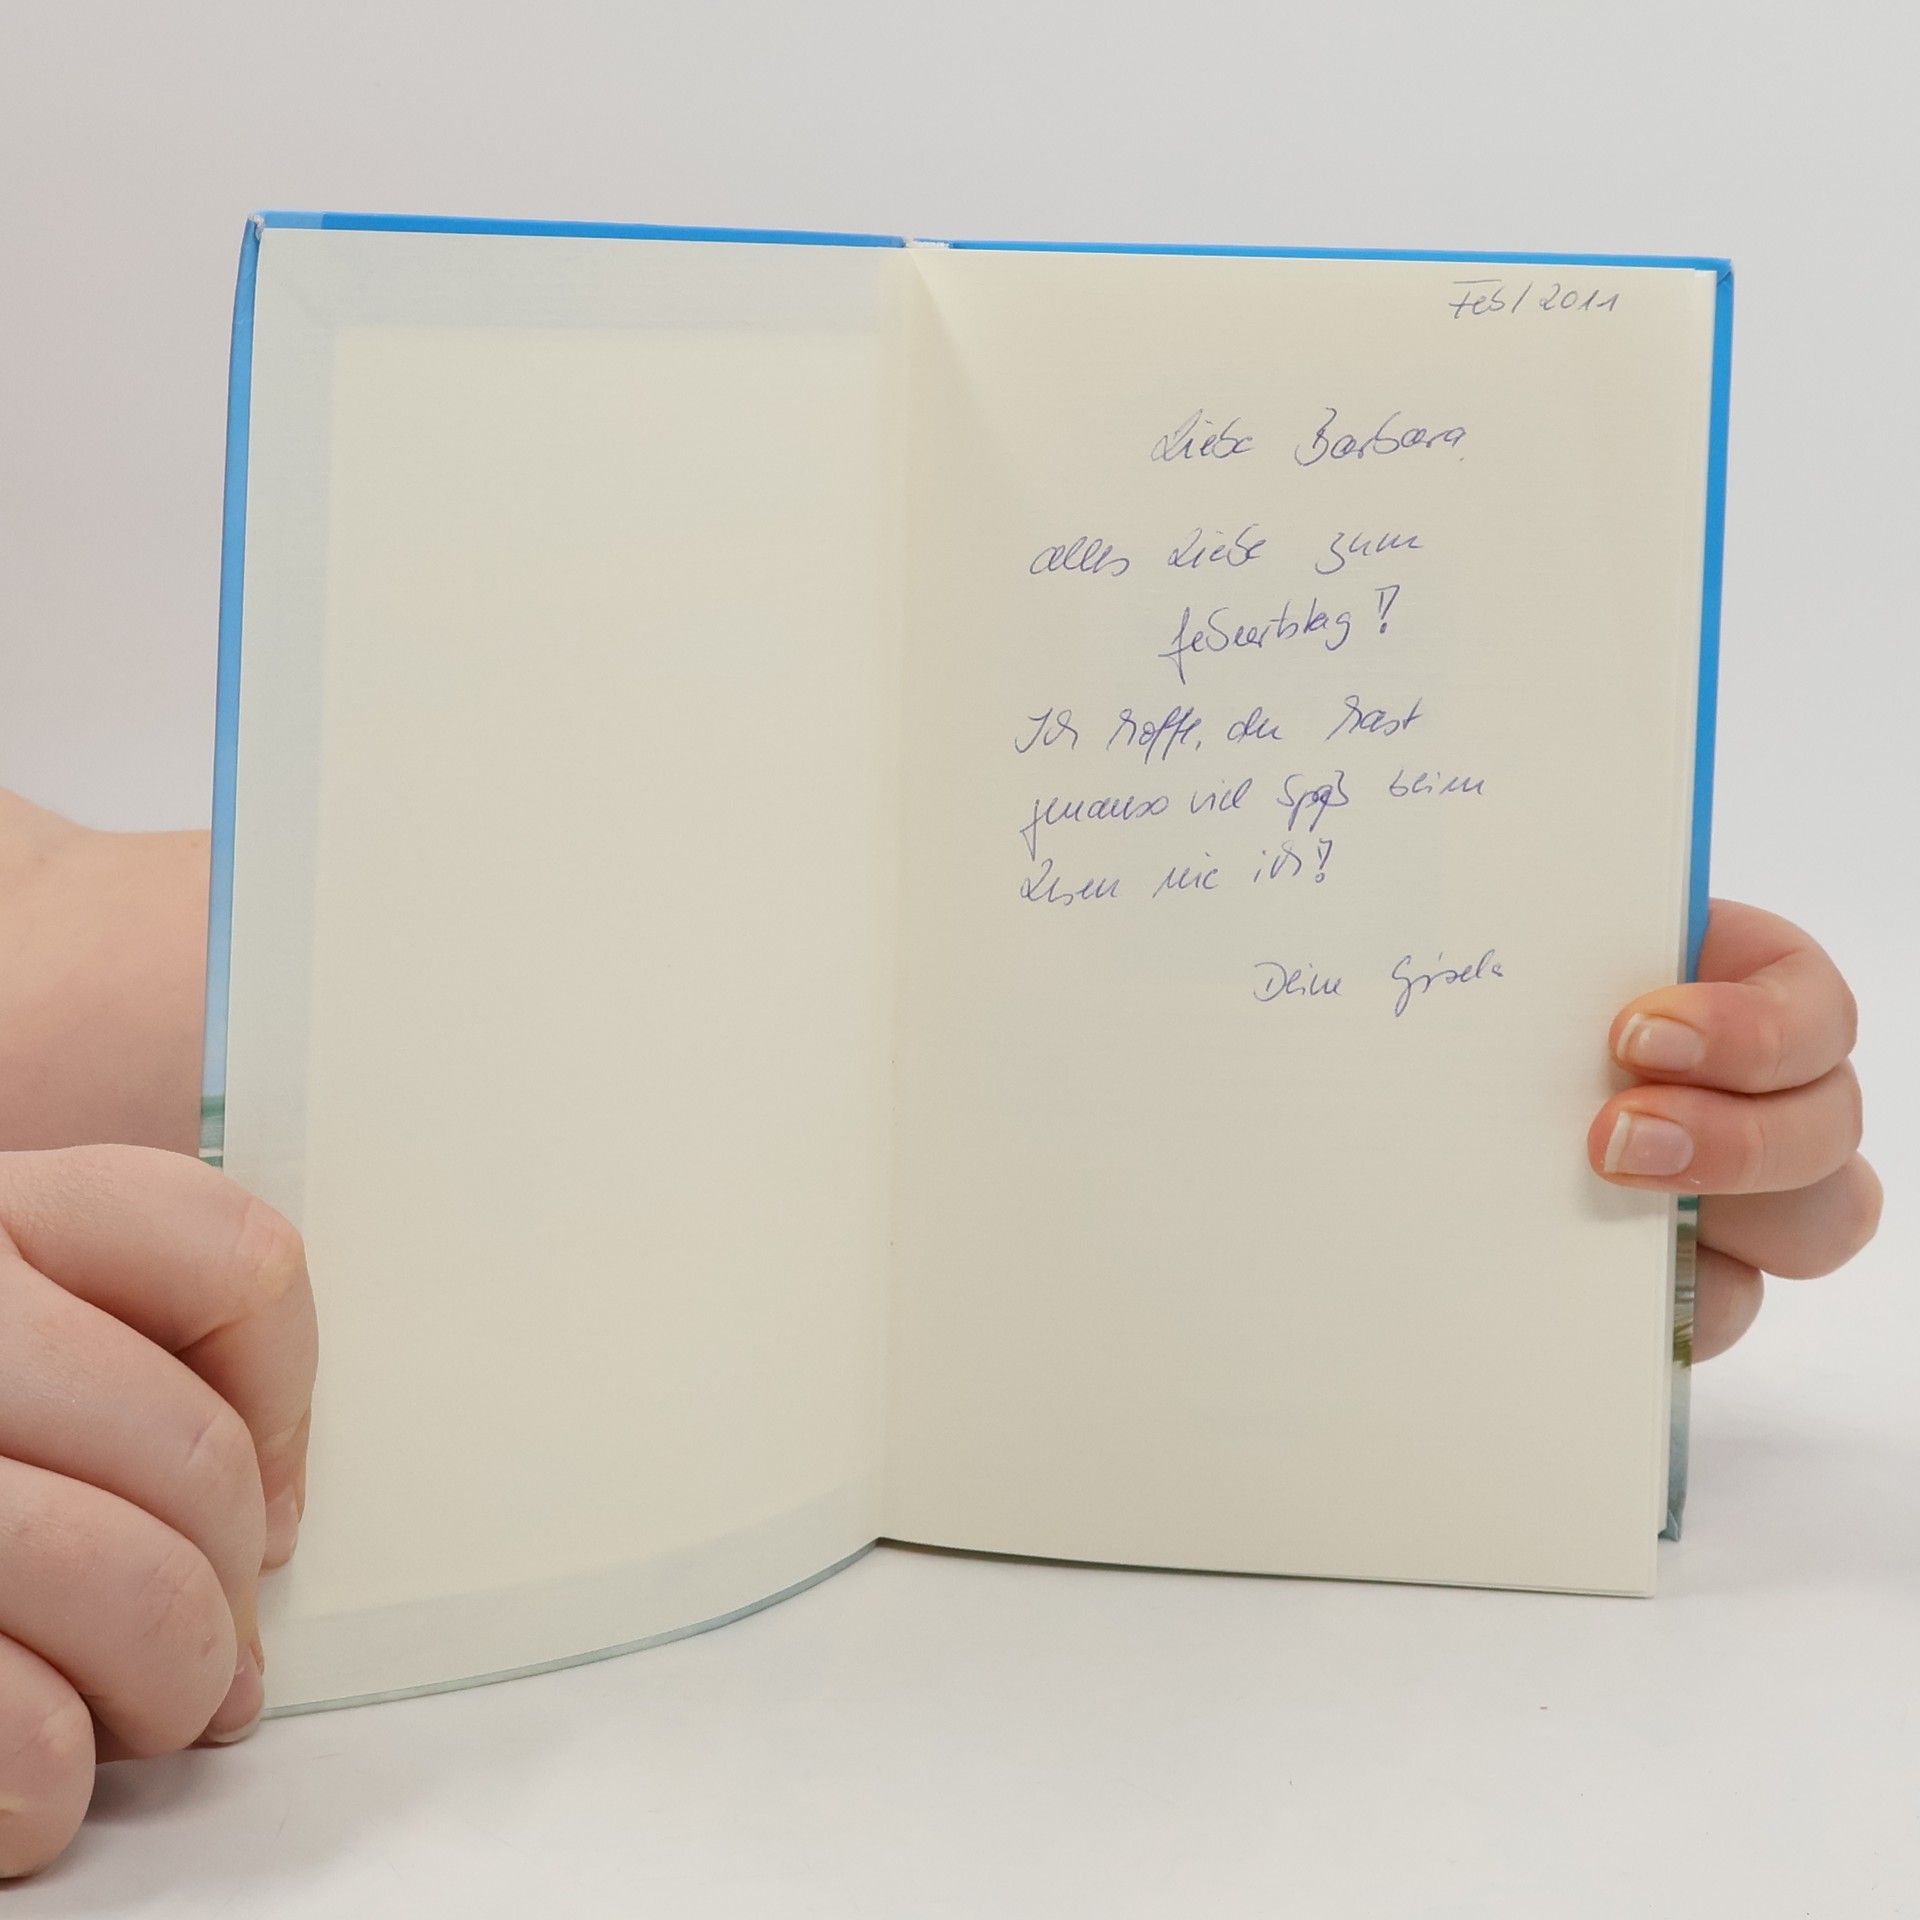 Feb/2011
Liebe Barbara,
alles Liebe zum
Geburtstag!
Ich hoffe, du hast
genauso viel Spaß beim
Lesen wie ich!
Deine Gisela